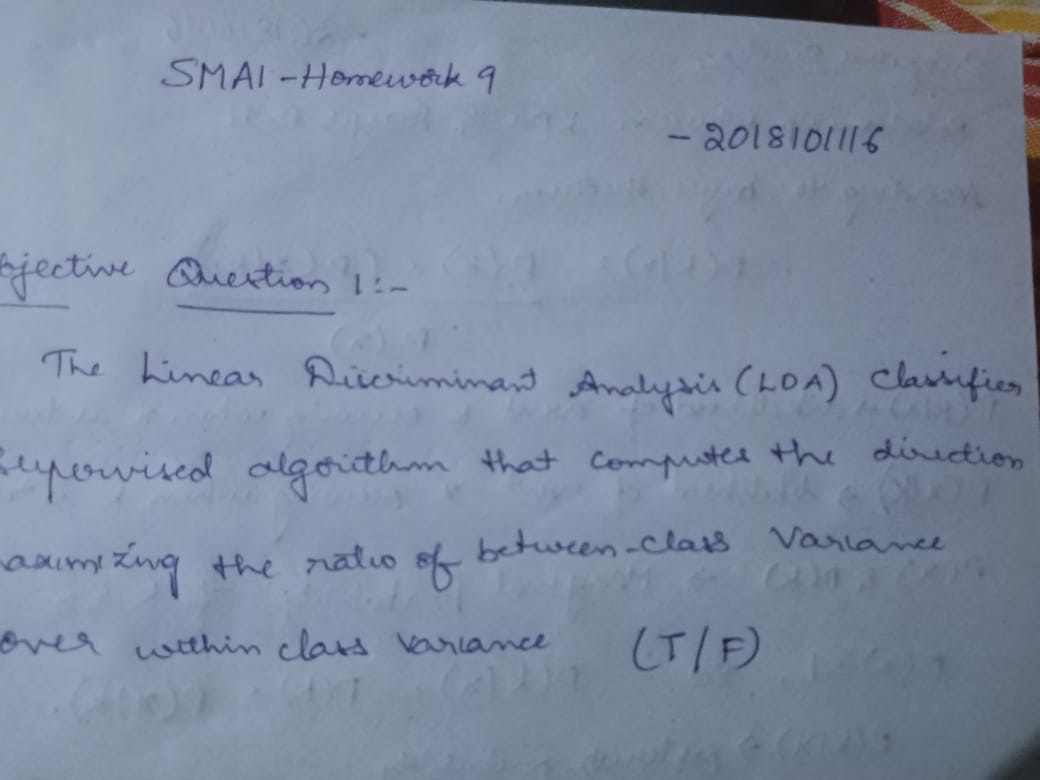 SMAI - Homework 9
- 2018101116
bjective Question 1:-
The Linear Discriminant Analysis (LDA) Classifier
supervised algorithm that computes the direction
aximizing the ratio of between-class Variance
over within class variance (T/F)